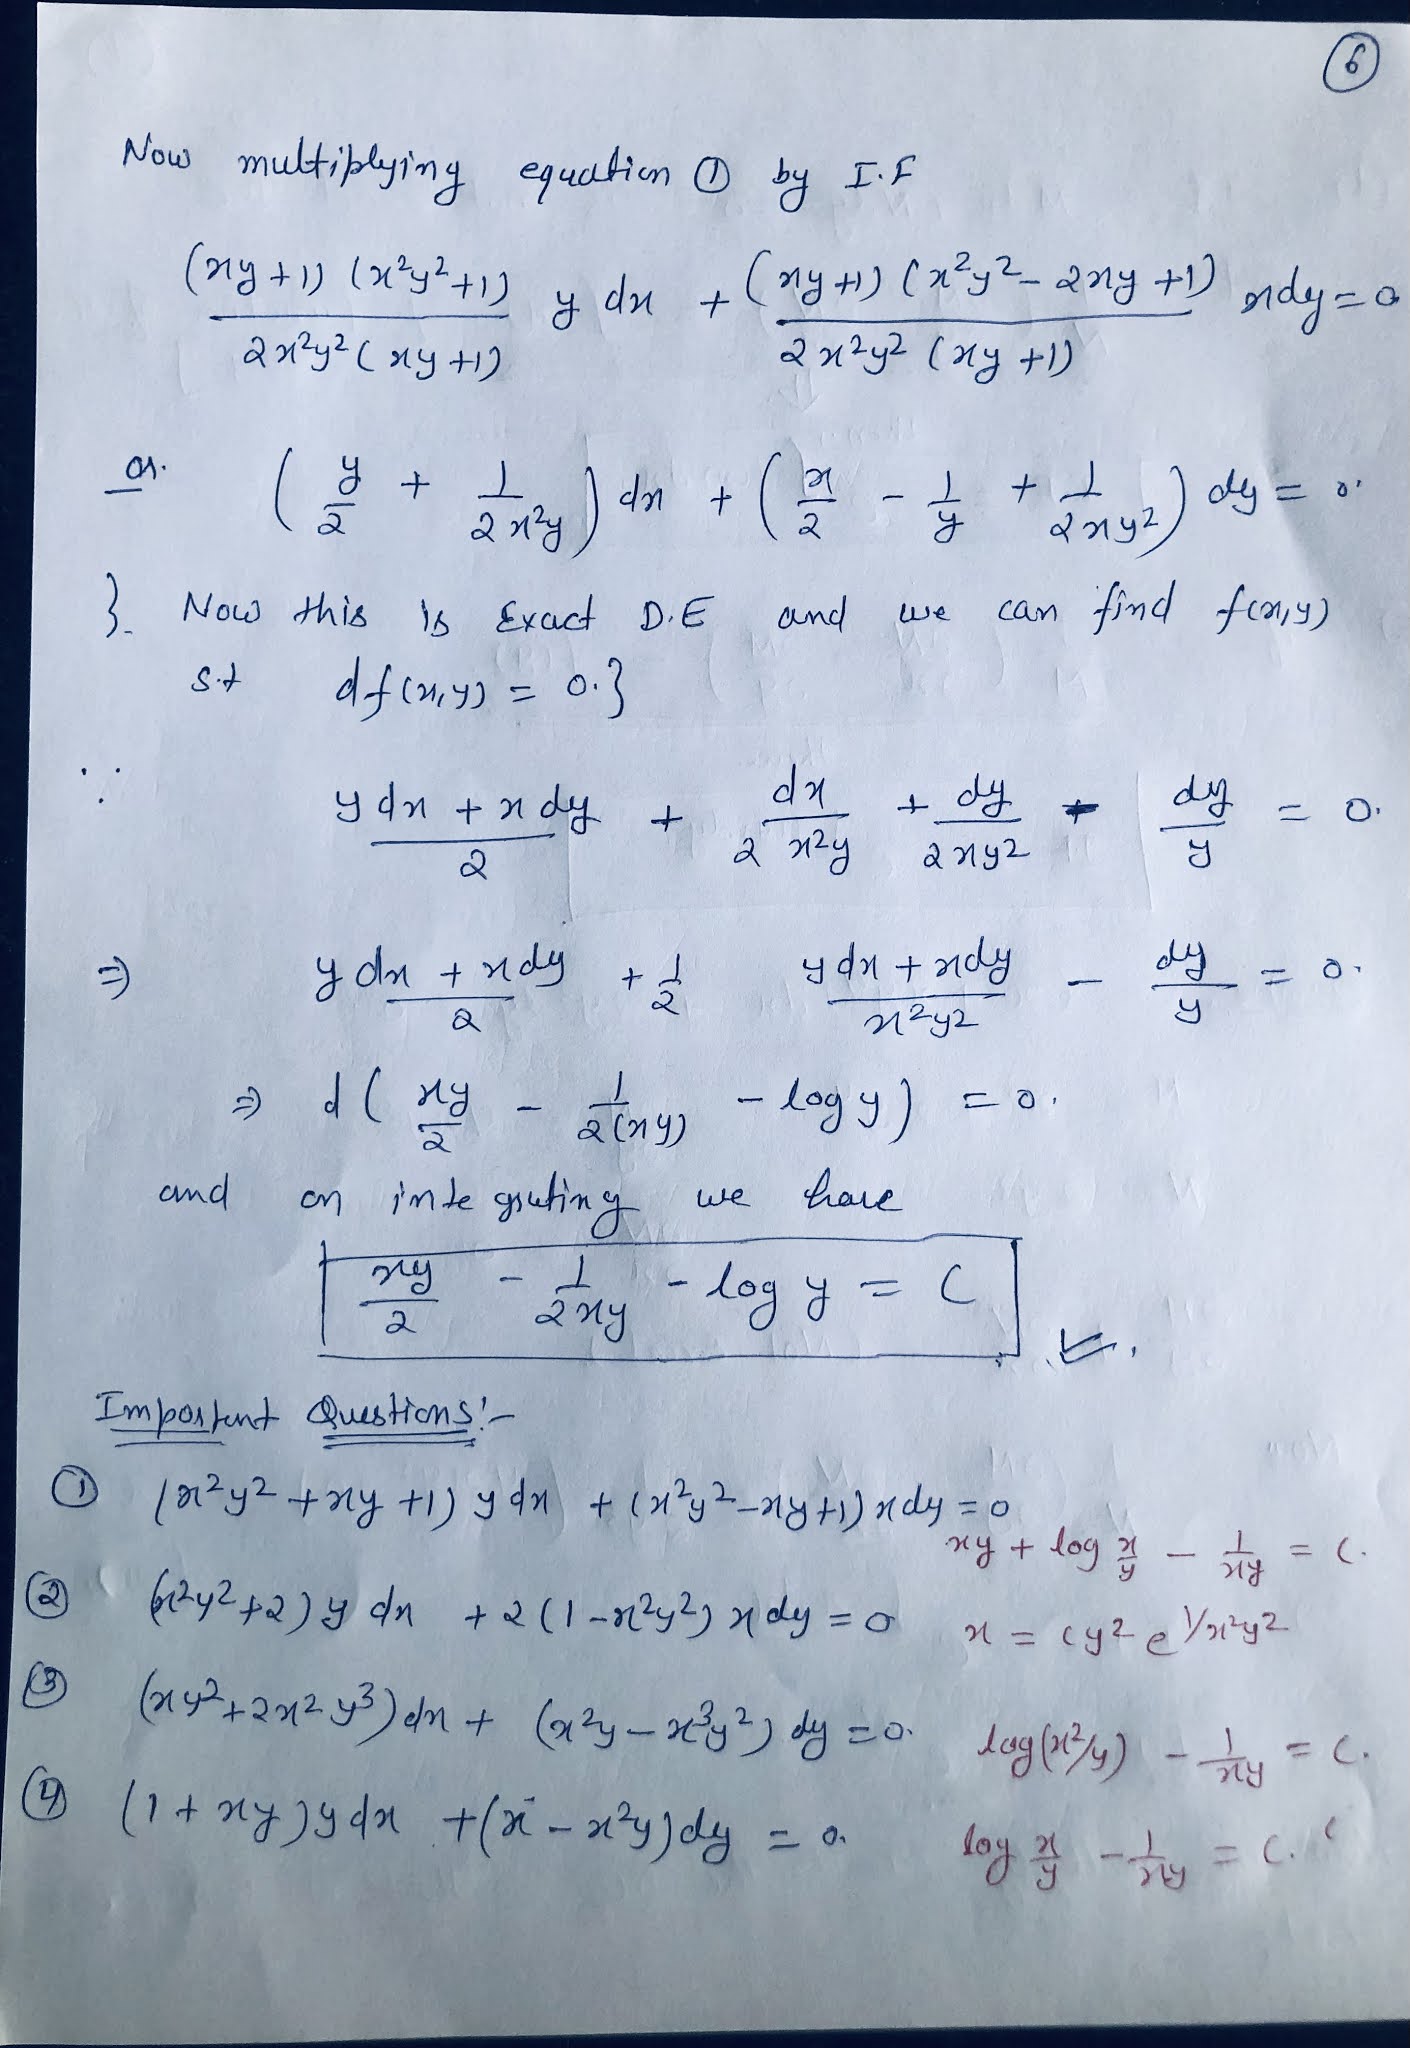 6
Now multiplying equation ① by I.F
(xy+1) (x²y²+1) / 2x²y²(xy+1) y dx + (xy+1) (x²y²-2xy+1) / 2x²y² (xy+1) xdy=0
or. (y/2 + 1/2x²y) dx + (x/2 - 1/y + 1/2xy²) dy = 0.
}. Now this is Exact D.E and we can find f(x,y)
s.t df(x,y) = 0.}
∵ y dx + x dy / 2 + dx / 2 x²y + dy / 2xy² - dy / y = 0.
⇒ y dx + xdy / 2 + 1/2 y dx + xdy / x²y² - dy / y = 0.
⇒ d ( xy/2 - 1/2(xy) - log y) = 0.
and on integrating we have
xy/2 - 1/2xy - log y = C
Important Questions:-
① (x²y² + xy +1) y dx + (x²y²-xy+1) x dy = 0
xy + log x/y - 1/xy = C.
② (x²y²+2) y dx + 2 (1-x²y²) x dy = 0 x = Cy² e^1/x²y²
③ (xy²+2x²y³) dx + (x²y - x³y²) dy = 0. log(x²/y) - 1/xy = C.
④ (1 + xy) y dx + (x - x²y) dy = 0. log x/y - 1/xy = C.